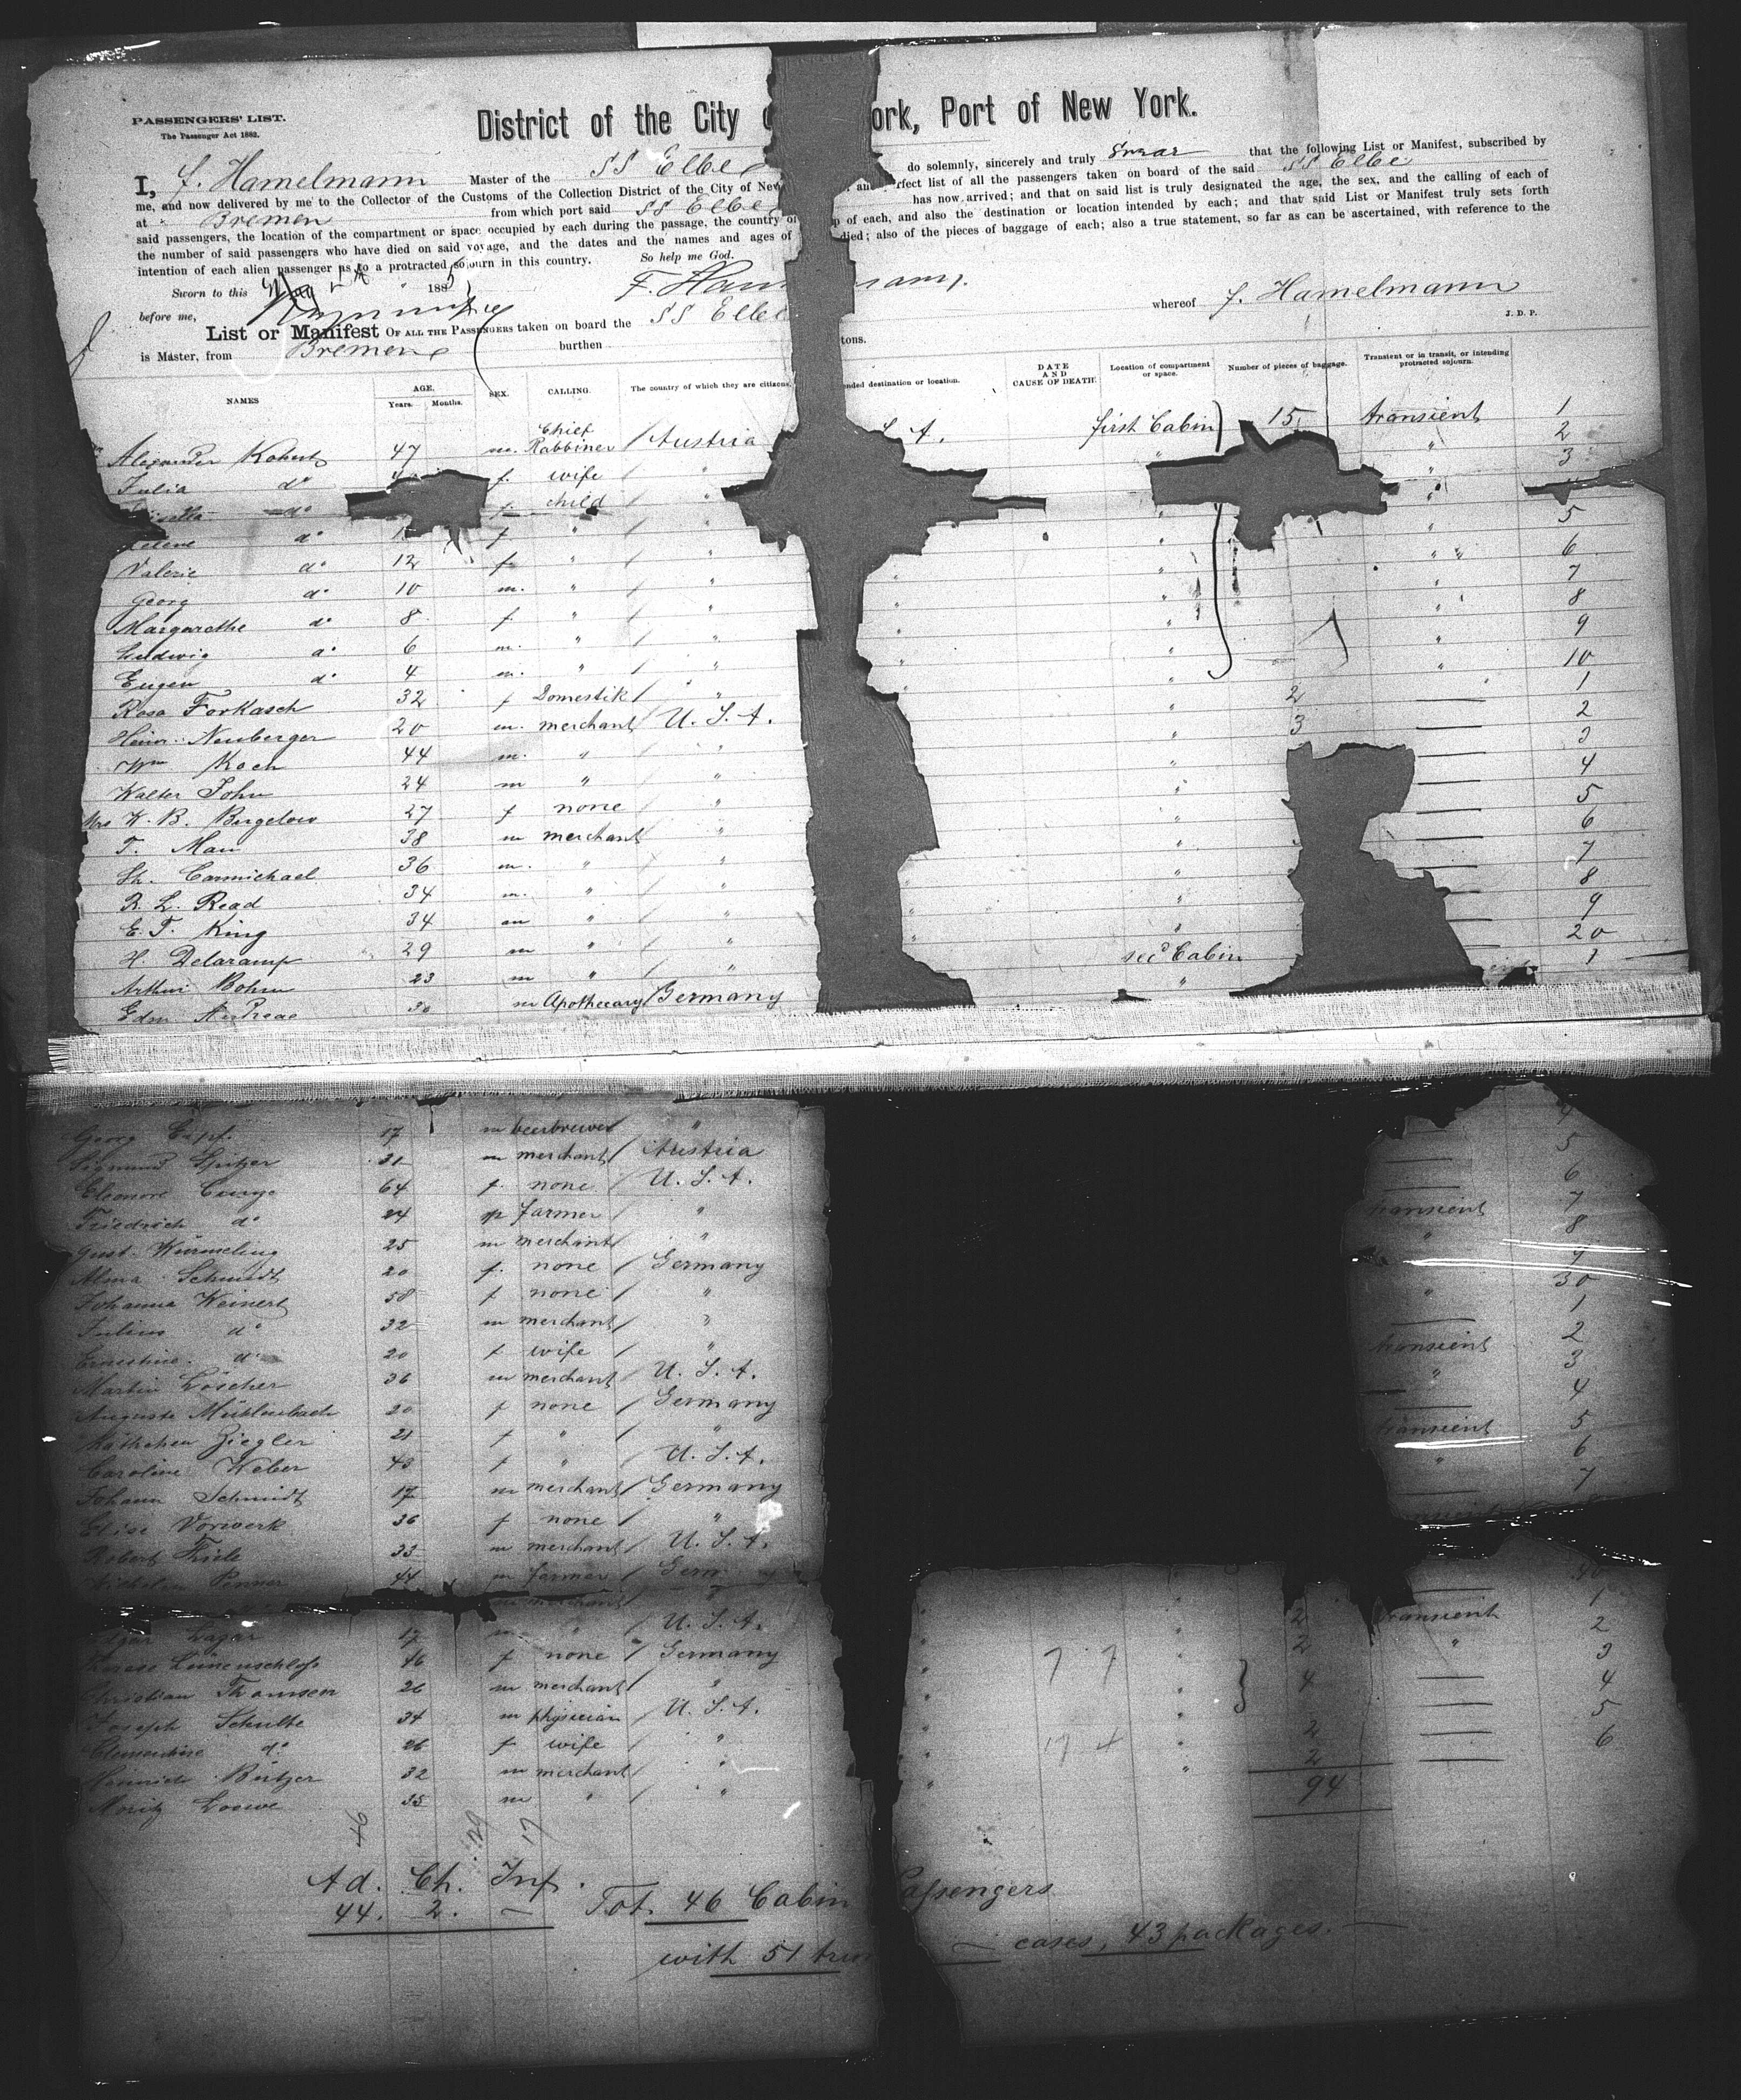 PASSENGERS' LIST.
The Passenger Act 1882.
District of the City ork, Port of New York.
I, F. Hamelmann Master of the SS Elbe do solemnly, sincerely and truly swear that the following List or Manifest, subscribed by
me, and now delivered by me to the Collector of the Customs of the Collection District of the City of New rfect list of all the passengers taken on board of the said SS Elbe
at Bremen from which port said SS Elbe has now arrived; and that on said list is truly designated the age, the sex, and the calling of each of
said passengers, the location of the compartment or space occupied by each during the passage, the country of of each, and also the destination or location intended by each; and that said List or Manifest truly sets forth
the number of said passengers who have died on said voyage, and the dates and the names and ages of died; also of the pieces of baggage of each; also a true statement, so far as can be ascertained, with reference to the
intention of each alien passenger as to a protracted sojourn in this country. So help me God.
Sworn to this 1885 F. Ham mann.
before me,
List or Manifest OF ALL THE PASSENGERS taken on board the SS Elbe whereof F. Hamelmann
J. D. P.
is Master, from Bremen burthen tons.
NAMES AGE. Years. Months. SEX. CALLING. The country of which they are citizens. nded destination or location. DATE AND CAUSE OF DEATH. Location of compartment or space. Number of pieces of baggage. Transient or in transit, or intending protracted sojourn.
Alexander Kohut 47 m. Chief Rabbiner / Austria S. A. first Cabin 15 transient 1
Julia do f. wife / " " " 2
do f child / " " 3
Helene do f " / " "
Valerie do 12 f " / " " " 5
Georg do 10 m. " / " " " " 6
Margarethe do 8 f. " / " " " " 7
Ludwig do 6 m. " / " " " " 8
Eugen do 4 m. " / " " " " 9
Rosa Forkasch 32 f Domestik / " " " 2 " 10
Heinr. Neuberger 20 m. merchant / U. S. A. " 3 1
Wm Koch 44 m. " " " 2
Walter John 24 m " / " " 3
Mrs W. B. Bigelow 27 f none / " " 4
T. Mau 38 m merchant " " 5
Sh. Carmichael 36 m. " / " " 6
R. L. Read 34 m. " / " " 7
E. T. King 34 m " / " " 8
H. Delaramp 29 m " / " " 9
Arthur Bohm 23 m " / " sec Cabin 20
Edm. Andreae 30 m Apothecary / Germany " 1
Georg 17 m beerbrewer / " 4
Sigmund Spitzer 31 m merchant / Austria 5
Eleonore 64 f. none / U. S. A. 6
Friedrich do 24 m farmer / " transient 7
Gust. Kümmeling 25 m merchant / " " 8
Alma Schmidt 20 f. none / Germany 9
Johanna Weinert 58 f none / " " 30
Julius do 32 m merchant / " 1
Ernestine do 20 f wife / " transient 2
Martin Löscher 36 m merchant / U. S. A. " 3
Auguste Mühlenbach 20 f none / Germany 4
Käthchen Ziegler 21 f " / " transient 5
Caroline Weber 43 f " U. S. A. " 6
Johann Schmidt 17 m merchant / Germany 7
Elise Vorwerk 36 f none / "
Robert Thiele 33 m merchant / U. S. A.
Penner 44 m farmer / Germ 40
m merchant / 2 transient 1
17 m " / U. S. A. " 2 " 2
Lünenschloss 46 f none / Germany " 4 3
Christian Thomsen 26 m merchant / " " 4
Joseph Schulte 34 m physician / U. S. A. " 2 5
Clementine do 26 f wife / " " 2 6
Heinrich Bützer 32 m merchant / " " 94
Moritz Loewe 35 m " / "
Ad. Ch. Inf.
44. 2. — Tot. 46 Cabin Passengers
with 51 trun — cases, 43 packages. —